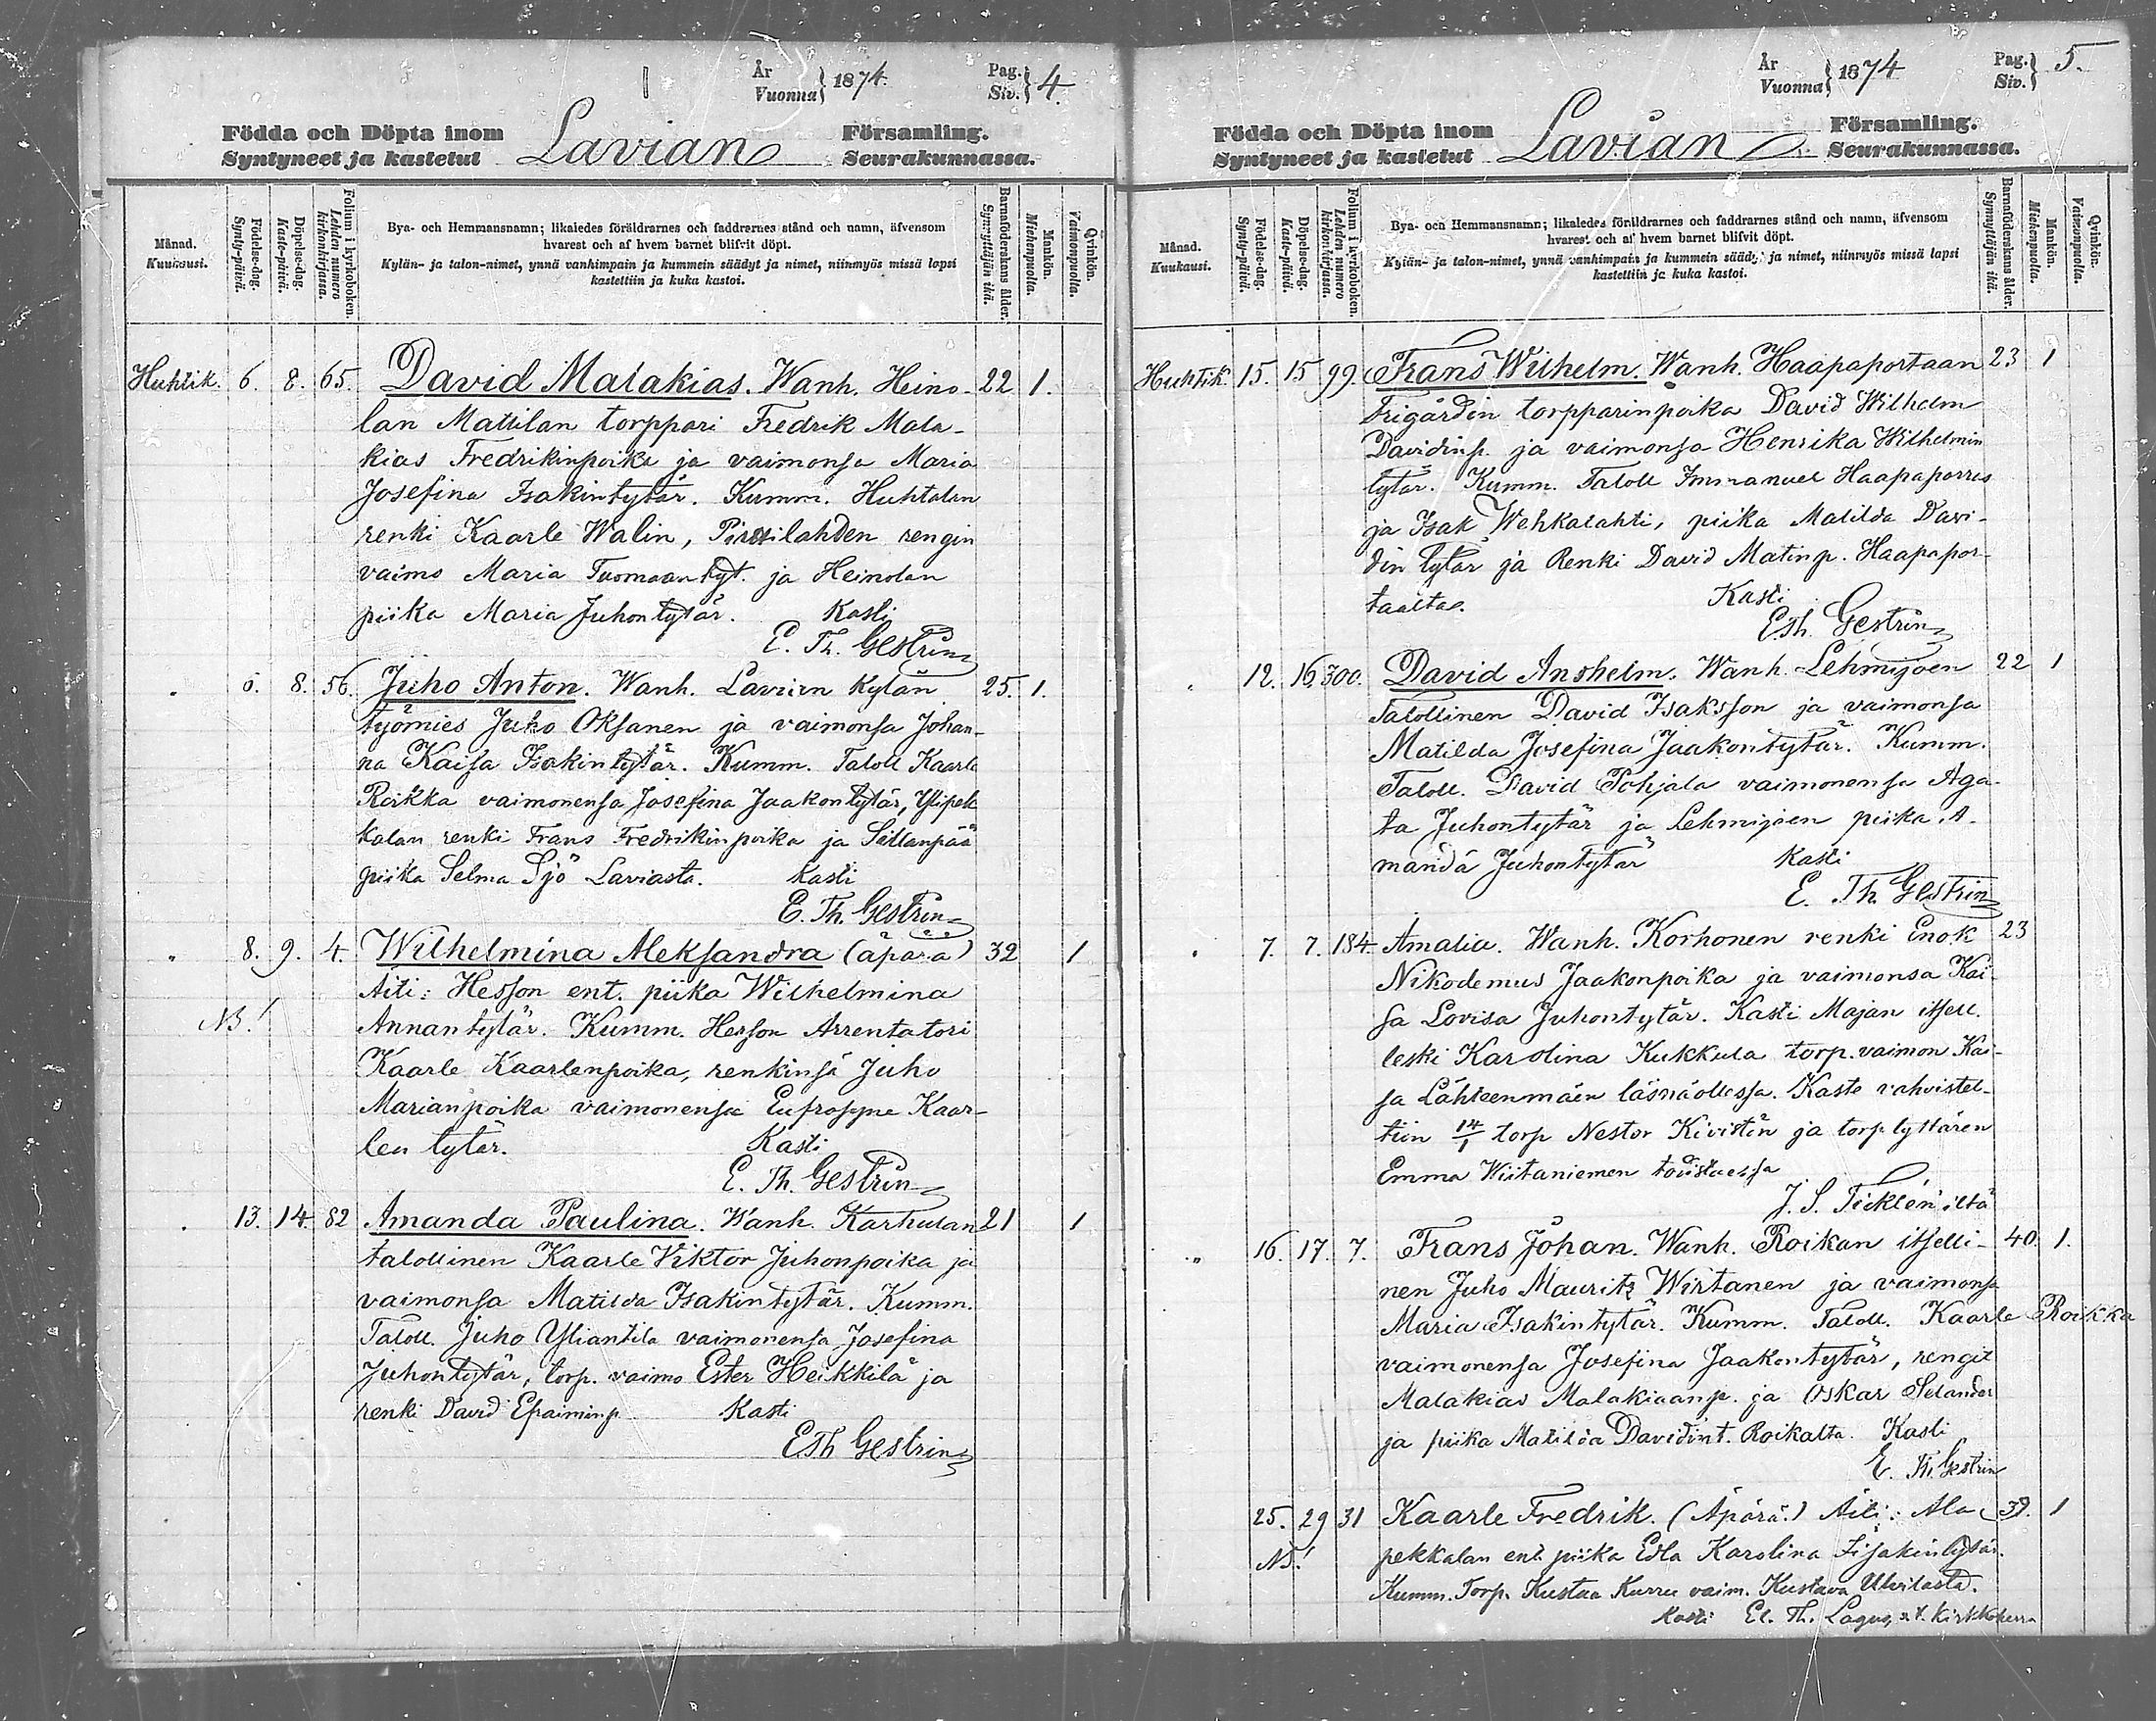 År
Vuonna } 1874. Pag.
Siv. } 4.
Födda och Döpta inom Lavian Församling.
Syntyneet ja kastetut Seurakunnassa.
Månad.
Kuukausi.
Födelse-dag.
Synty-päivä.
Döpelse-dag.
Kaste-päivä.
Folium i kyrkoboken.
Lehden numero kirkonkirjassa.
Bya- och Hemmansnamn; likaledes föräldrarnes och faddrarnes stånd och namn, äfvensom
hvarest och af hvem barnet blifvit döpt.
Kylän- ja talon-nimet, ynnä vanhimpain ja kummein säädyt ja nimet, niinmyös missä lapsi
kastettiin ja kuka kastoi.
Barnaföderskans ålder.
Synnyttäjän ikä.
Mankön.
Miehenpuolta.
Qvinkön.
Vaimonpuolta.
Huhtik. 6. 8. 65. David Malakias. Wanh. Heino- 22 1.
lan Mattilan torppari Fredrik Mala-
kias Fredrikinpoika ja vaimonsa Maria
Josefina Isakintytär. Kumm. Huhtalan
renki Kaarle Walin, rengin
vaimo Maria Tuomaantyt. ja Heinolan
piika Maria Juhontytär. Kasti
E. Th. Gestrin
" 6. 8. 56. Juho Anton. Wanh. Lavian kylän 25. 1.
työmies Juho Oksanen ja vaimonsa Johan-
na Kaisa Isakintytär. Kumm. Taloll Kaarle
Roikka vaimonensa Josefina Jaakontytär, Ylipek
kalan renki Frans Fredrikinpoika ja Sillanpää
piika Selma Sjö Laviasta. Kasti
E. Th. Gestrin
" 8. 9. 4. Wilhelmina Aleksandra (äpärä) 32 1
Äiti: Hesson ent. piika Wilhelmina
NB! Annantytär. Kumm. Hesson Arrentatori
Kaarle Kaarlenpoika, renkinsä Juho
Marianpoika vaimonensa Eufrosyne Kaar-
len tytär. Kasti
E. Th. Gestrin
" 13. 14. 82 Amanda Paulina. Wanh. Karhulan 21 1
talollinen Kaarle Viktor Juhonpoika ja
vaimonsa Matilda Isakintytär. Kumm.
Taloll. Juho Yliantila vaimonensa Josefina
Juhontytär, torp. vaimo Ester Heikkilä ja
renki David Efraiminp. Kasti
E.Th Gestrin
År
Vuonna } 1874 Pag.
Siv. } 5.
Födda och Döpta inom Lavian Församling.
Syntyneet ja kastetut Seurakunnassa.
Månad.
Kuukausi.
Födelse-dag.
Synty-päivä.
Döpelse-dag.
Kaste-päivä.
Folium i kyrkoboken.
Lehden numero kirkonkirjassa.
Bya- och Hemmansnamn; likaledes föräldrarnes och faddrarnes stånd och namn, äfvensom
hvarest och af hvem barnet blifvit döpt.
Kylän- ja talon-nimet, ynnä vanhimpain ja kummein säädyt ja nimet, niinmyös missä lapsi
kastettiin ja kuka kastoi.
Barnaföderskans ålder.
Synnyttäjän ikä.
Mankön.
Miehenpuolta.
Qvinkön.
Vaimonpuolta.
Huhtik. 15. 15 99. Frans Wilhelm. Wanh. Haapaportaan 23 1
Frigårdin torpparinpoika David Wilhelm
Davidinp. ja vaimonsa Henrika Wilhelmin
tytär. Kumm. Taloll Immanuel Haapaporras
ja Isak Wehkalahti, piika Matilda Davi-
din tytär ja Renki David Matinp. Haapapor-
taalta. Kasti
E.Th. Gestrin
" 12. 16 300. David Anshelm. Wanh. Lehmijoen 22 1
Talollinen David Isaksson ja vaimonsa
Matilda Josefina Jaakontytär. Kumm.
Taloll. David Pohjala vaimonensa Aga-
ta Juhontytär ja Lehmijoen piika A-
manda Juhontytär Kasti
E. Th. Gestrin
" 7. 7. 184 Amalia. Wanh. Korhonen renki Enok 23
Nikodemus Jaakonpoika ja vaimonsa Kai-
sa Lovisa Juhontytär. Kasti Majan itsell.
leski Karolina Kukkula torp. vaimon Kai-
sa Lähteenmäen läsnäollessa. Kaste vahvistet-
tiin 14/1 torp Nestor Kivistön ja torp. tyttären
Emma Wiitaniemen todistaessa
J. S. Ticklén'iltä
" 16. 17. 7. Frans Johan. Wanh. Roikan itselli- 40. 1.
nen Juho Mauritz Wirtanen ja vaimonsa
Maria Isakintytär. Kumm. Taloll. Kaarle Roikka
vaimonensa Josefina Jaakontytär, rengit
Malakias Malakiaanp. ja Oskar Selander
ja piika Matilda Davidint. Roikalta. Kasti
E. Th. Gestrin
25. 29 31 Kaarle Fredrik. (Äpärä.) Äiti: Ala- 39. 1
NB! pekkalan ent. piika Edla Karolina Iisakintytär.
Kumm. Torp. Kustaa Kurru vaim. Kustava Ulvilasta.
Kasti El. Th. Lagus, v.t. Kirkkoherra